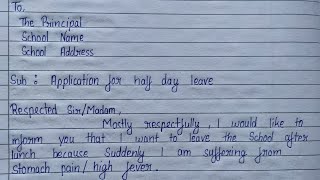 To,
The Principal
School Name
School Address
Sub : Application for half day leave
Respected Sir/Madam,
Mostly respectfully, I would like to
inform you that I want to leave the School after
lunch because Suddenly I am suffering from
Stomach pain/ high fever.